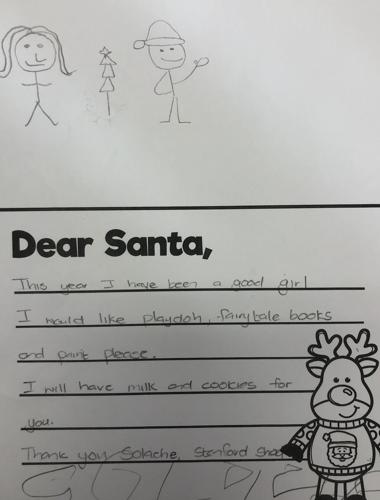 Dear Santa,
This year I have been a good girl
I would like playdoh, fairytale books
and paint please.
I will have milk and cookies for
you.
Thank you Solache, Stanford